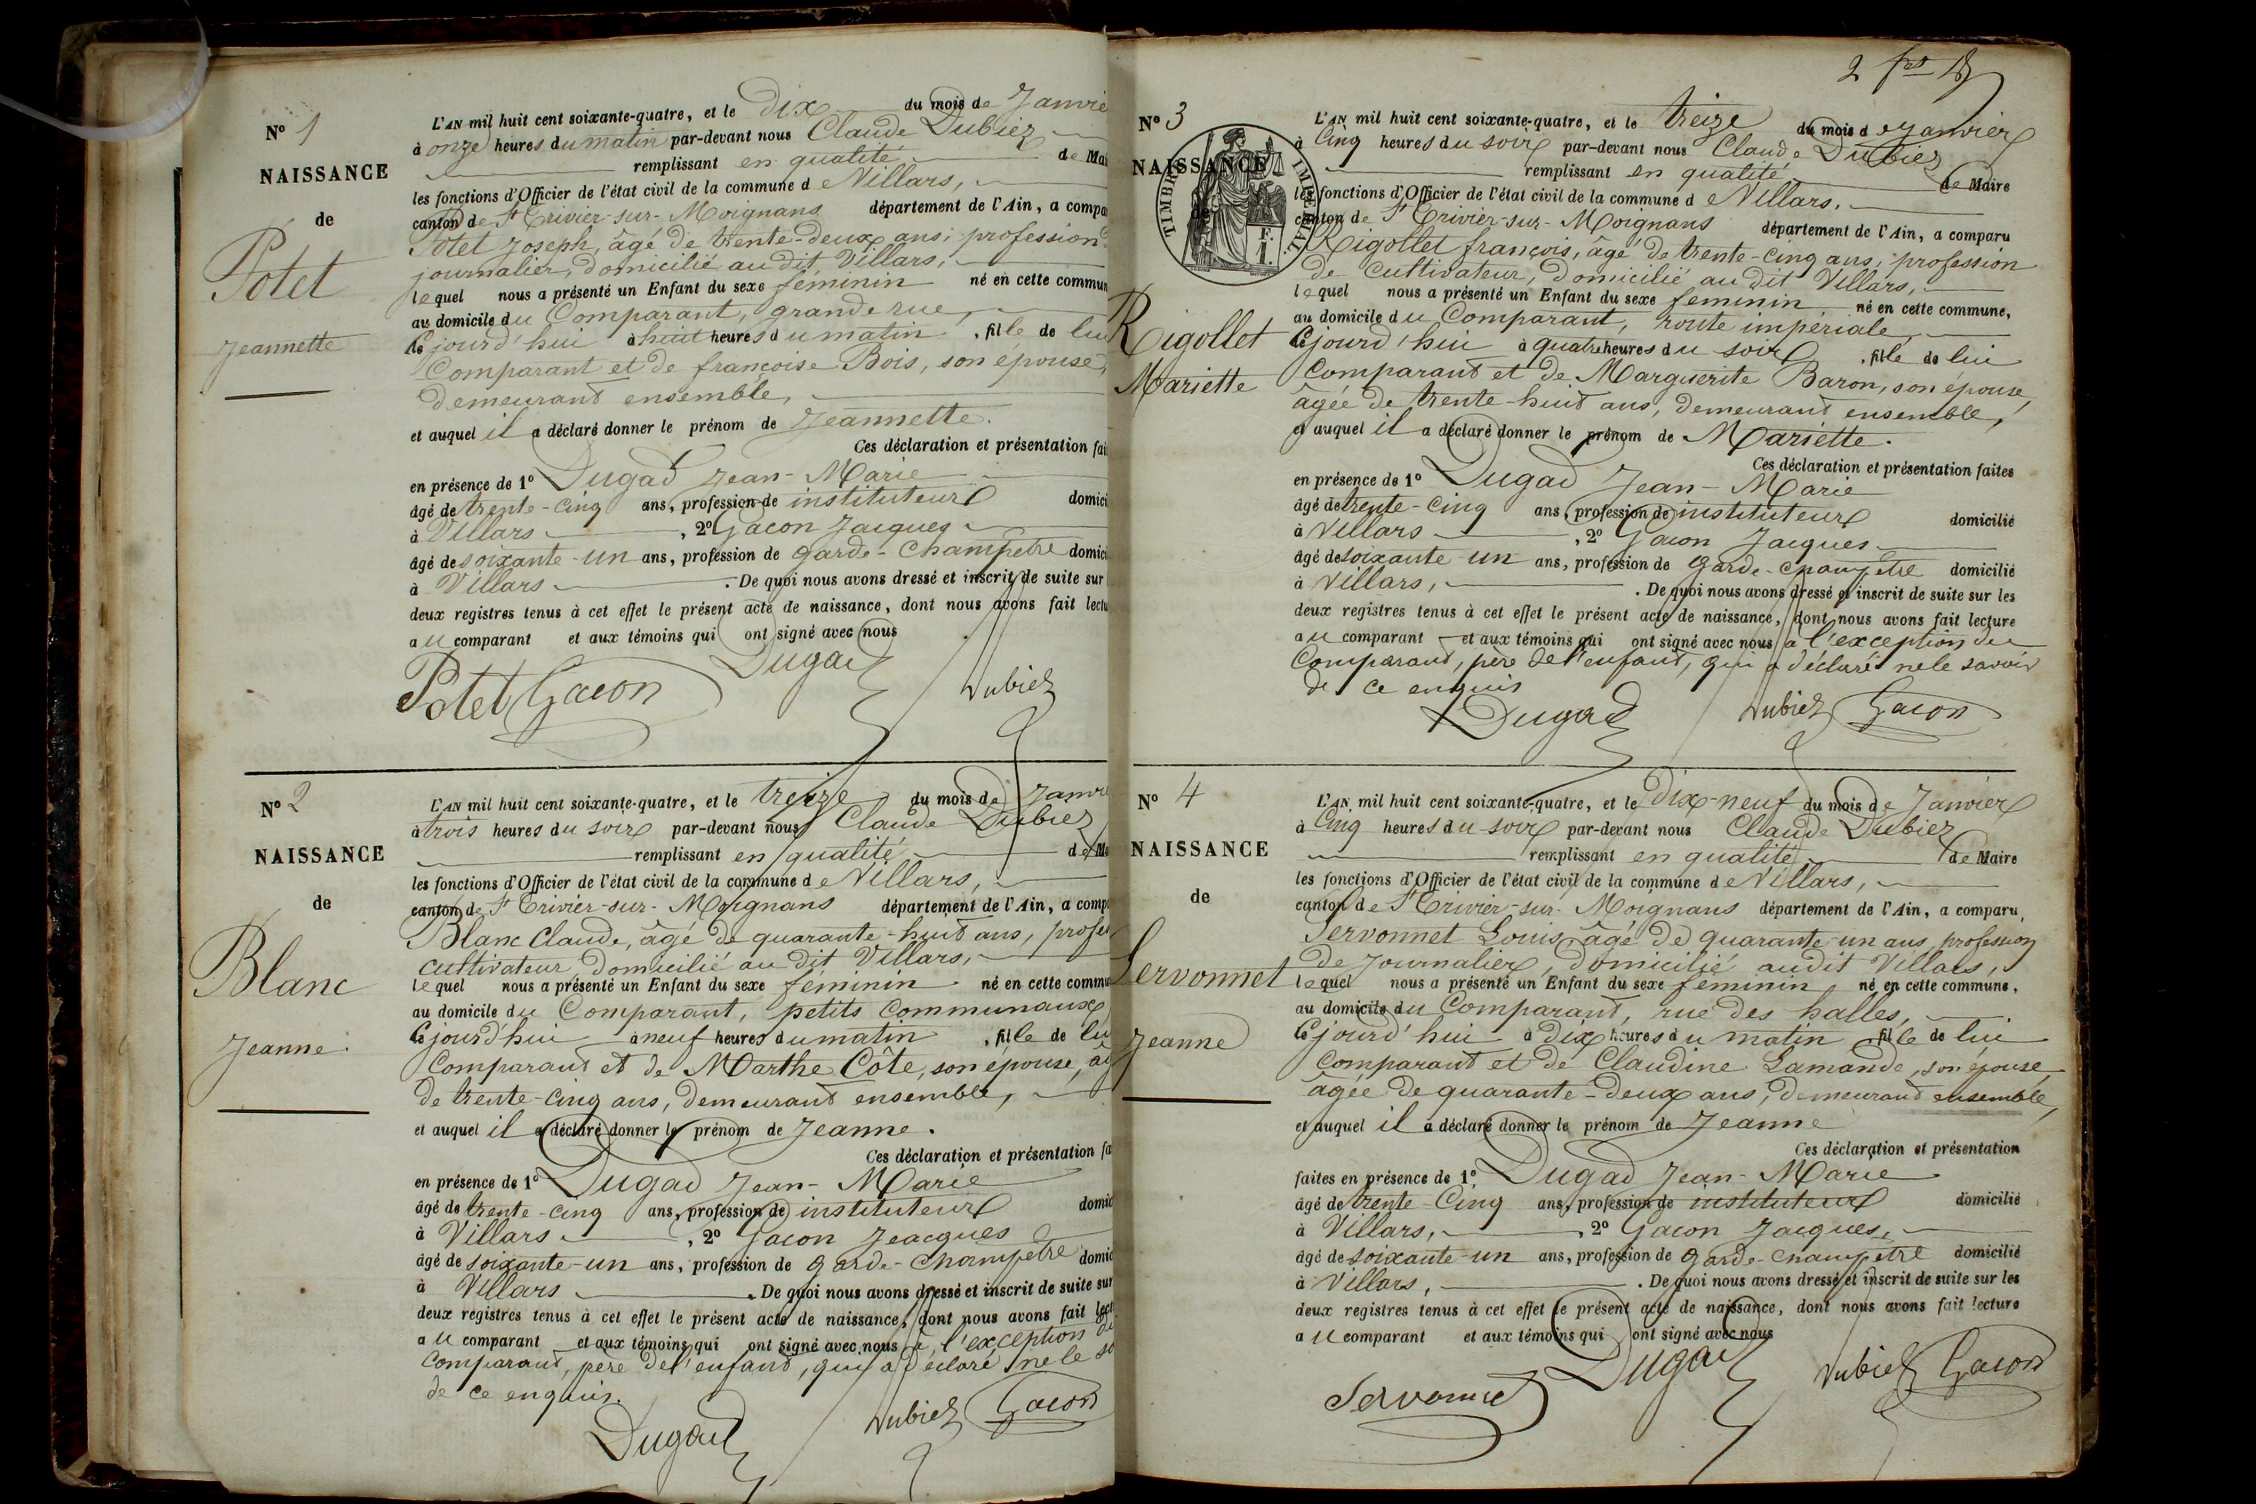 N° 1
NAISSANCE
de
Potet
Jeannette
L'AN mil huit cent soixante-quatre, et le dix du mois de Janvie
à onze heures du matin par-devant nous Claude Dubiez
remplissant en qualité de Mai
les fonctions d'Officier de l'état civil de la commune de Villars,
canton de St Trivier-sur-Moignans département de l'Ain, a compa
Potet Joseph, âgé de trente-deux ans, profession
journalier, domicilié au dit Villars,
lequel nous a présenté un Enfant du sexe féminin né en cette commun
au domicile du Comparant, grande rue,
cejourd'hui à huit heures du matin, fille de lui
Comparant et de françoise Bois, son épouse,
demeurant ensemble,
et auquel il a déclaré donner le prénom de Jeannette.
Ces déclaration et présentation fai
en présence de 1° Dugad Jean-Marie
âgé de trente-cinq ans, profession de instituteur domici
à Villars, 2° Gacon Jacques
âgé de soixante-un ans, profession de garde-champêtre domici
à Villars. De quoi nous avons dressé et inscrit de suite sur
deux registres tenus à cet effet le présent acte de naissance, dont nous avons fait lectu
au comparant et aux témoins qui ont signé avec nous
Potet Gacon Dugad Dubiez
N° 2
NAISSANCE
de
Blanc
Jeanne.
L'AN mil huit cent soixante-quatre, et le treize du mois de Janvie
à trois heures du soir par-devant nous Claude Dubiez
remplissant en qualité de Ma
les fonctions d'Officier de l'état civil de la commune de Villars,
canton de St Trivier-sur-Moignans département de l'Ain, a comp
Blanc Claude, âgé de quarante-huit ans, profes
cultivateur domicilié au dit Villars,
lequel nous a présenté un Enfant du sexe féminin né en cette commu
au domicile du Comparant, petits communaux
cejourd'hui à neuf heures du matin, fille de lui
Comparant et de Marthe Côte, son épouse, âg
de trente-cinq ans, demeurant ensemble,
et auquel il a déclaré donner le prénom de Jeanne.
Ces déclaration et présentation fa
en présence de 1° Dugad Jean-Marie
âgé de trente-cinq ans, profession de instituteur domic
à Villars, 2° Gacon Jeacques
âgé de soixante-un ans, profession de garde-champêtre domic
à Villars. De quoi nous avons dressé et inscrit de suite sur
deux registres tenus à cet effet le présent acte de naissance, dont nous avons fait lect
au comparant et aux témoins qui ont signé avec nous à l'exception du
comparant, père de l'enfant, qui a déclaré ne le sa
de ce enquis.
Dugad Dubiez Gacon
2
N° 3
NAISSANCE
de
TIMBRE IMPERIAL
F.
1.
Rigollet
Mariette
L'AN mil huit cent soixante-quatre, et le treize du mois de Janvier
à Cinq heures du soir par-devant nous Claude Dubiez
remplissant en qualité de Maire
les fonctions d'Officier de l'état civil de la commune de Villars,
canton de St Trivier-sur-Moignans département de l'Ain, a comparu
Rigollet françois, âgé de trente-cinq ans, profession
de Cultivateur, domicilié au dit Villars,
lequel nous a présenté un Enfant du sexe féminin né en cette commune,
au domicile du Comparant, route impériale,
cejourd'hui à quatre heures du soir, fille de lui
Comparant et de Marguerite Baron, son épouse,
âgée de trente-huit ans, demeurant ensemble,
et auquel il a déclaré donner le prénom de Mariette.
Ces déclaration et présentation faites
en présence de 1° Dugad Jean-Marie
âgé de trente-cinq ans, profession de instituteur domicilié
à Villars, 2° Gacon Jacques
âgé de soixante-un ans, profession de garde-champêtre domicilié
à Villars,. De quoi nous avons dressé et inscrit de suite sur les
deux registres tenus à cet effet le présent acte de naissance, dont nous avons fait lecture
au comparant et aux témoins qui ont signé avec nous à l'exception du
Comparant, père de l'enfant, qui a déclaré ne le savoir
de ce enquis
Dugad Dubiez Gacon
N° 4
NAISSANCE
de
Servonnet
Jeanne
L'AN mil huit cent soixante-quatre, et le Dix-neuf du mois de Janvier
à Cinq heures du soir par-devant nous Claude Dubiez
remplissant en qualité de Maire
les fonctions d'Officier de l'état civil de la commune de Villars,
canton de St Trivier-sur-Moignans département de l'Ain, a comparu,
Servonnet Louis, âgé de quarante-un ans, profession
de Journalier, domicilié audit Villars,
lequel nous a présenté un Enfant du sexe féminin né en cette commune,
au domicile du Comparant, rue des halles,
cejourd'hui à dix heures du matin, fille de lui
Comparant et de Claudine Lamande, son épouse,
âgée de quarante-deux ans, demeurant ensemble,
et auquel il a déclaré donner le prénom de Jeanne
Ces déclaration et présentation
faites en présence de 1° Dugad Jean-Marie
âgé de trente-Cinq ans, profession de instituteur domicilié
à Villars, 2° Gacon Jacques,
âgé de soixante-un ans, profession de garde-champêtre domicilié
à Villars,. De quoi nous avons dressé et inscrit de suite sur les
deux registres tenus à cet effet le présent acte de naissance, dont nous avons fait lecture
au comparant et aux témoins qui ont signé avec nous
Servonnet Dugad Dubiez Gacon